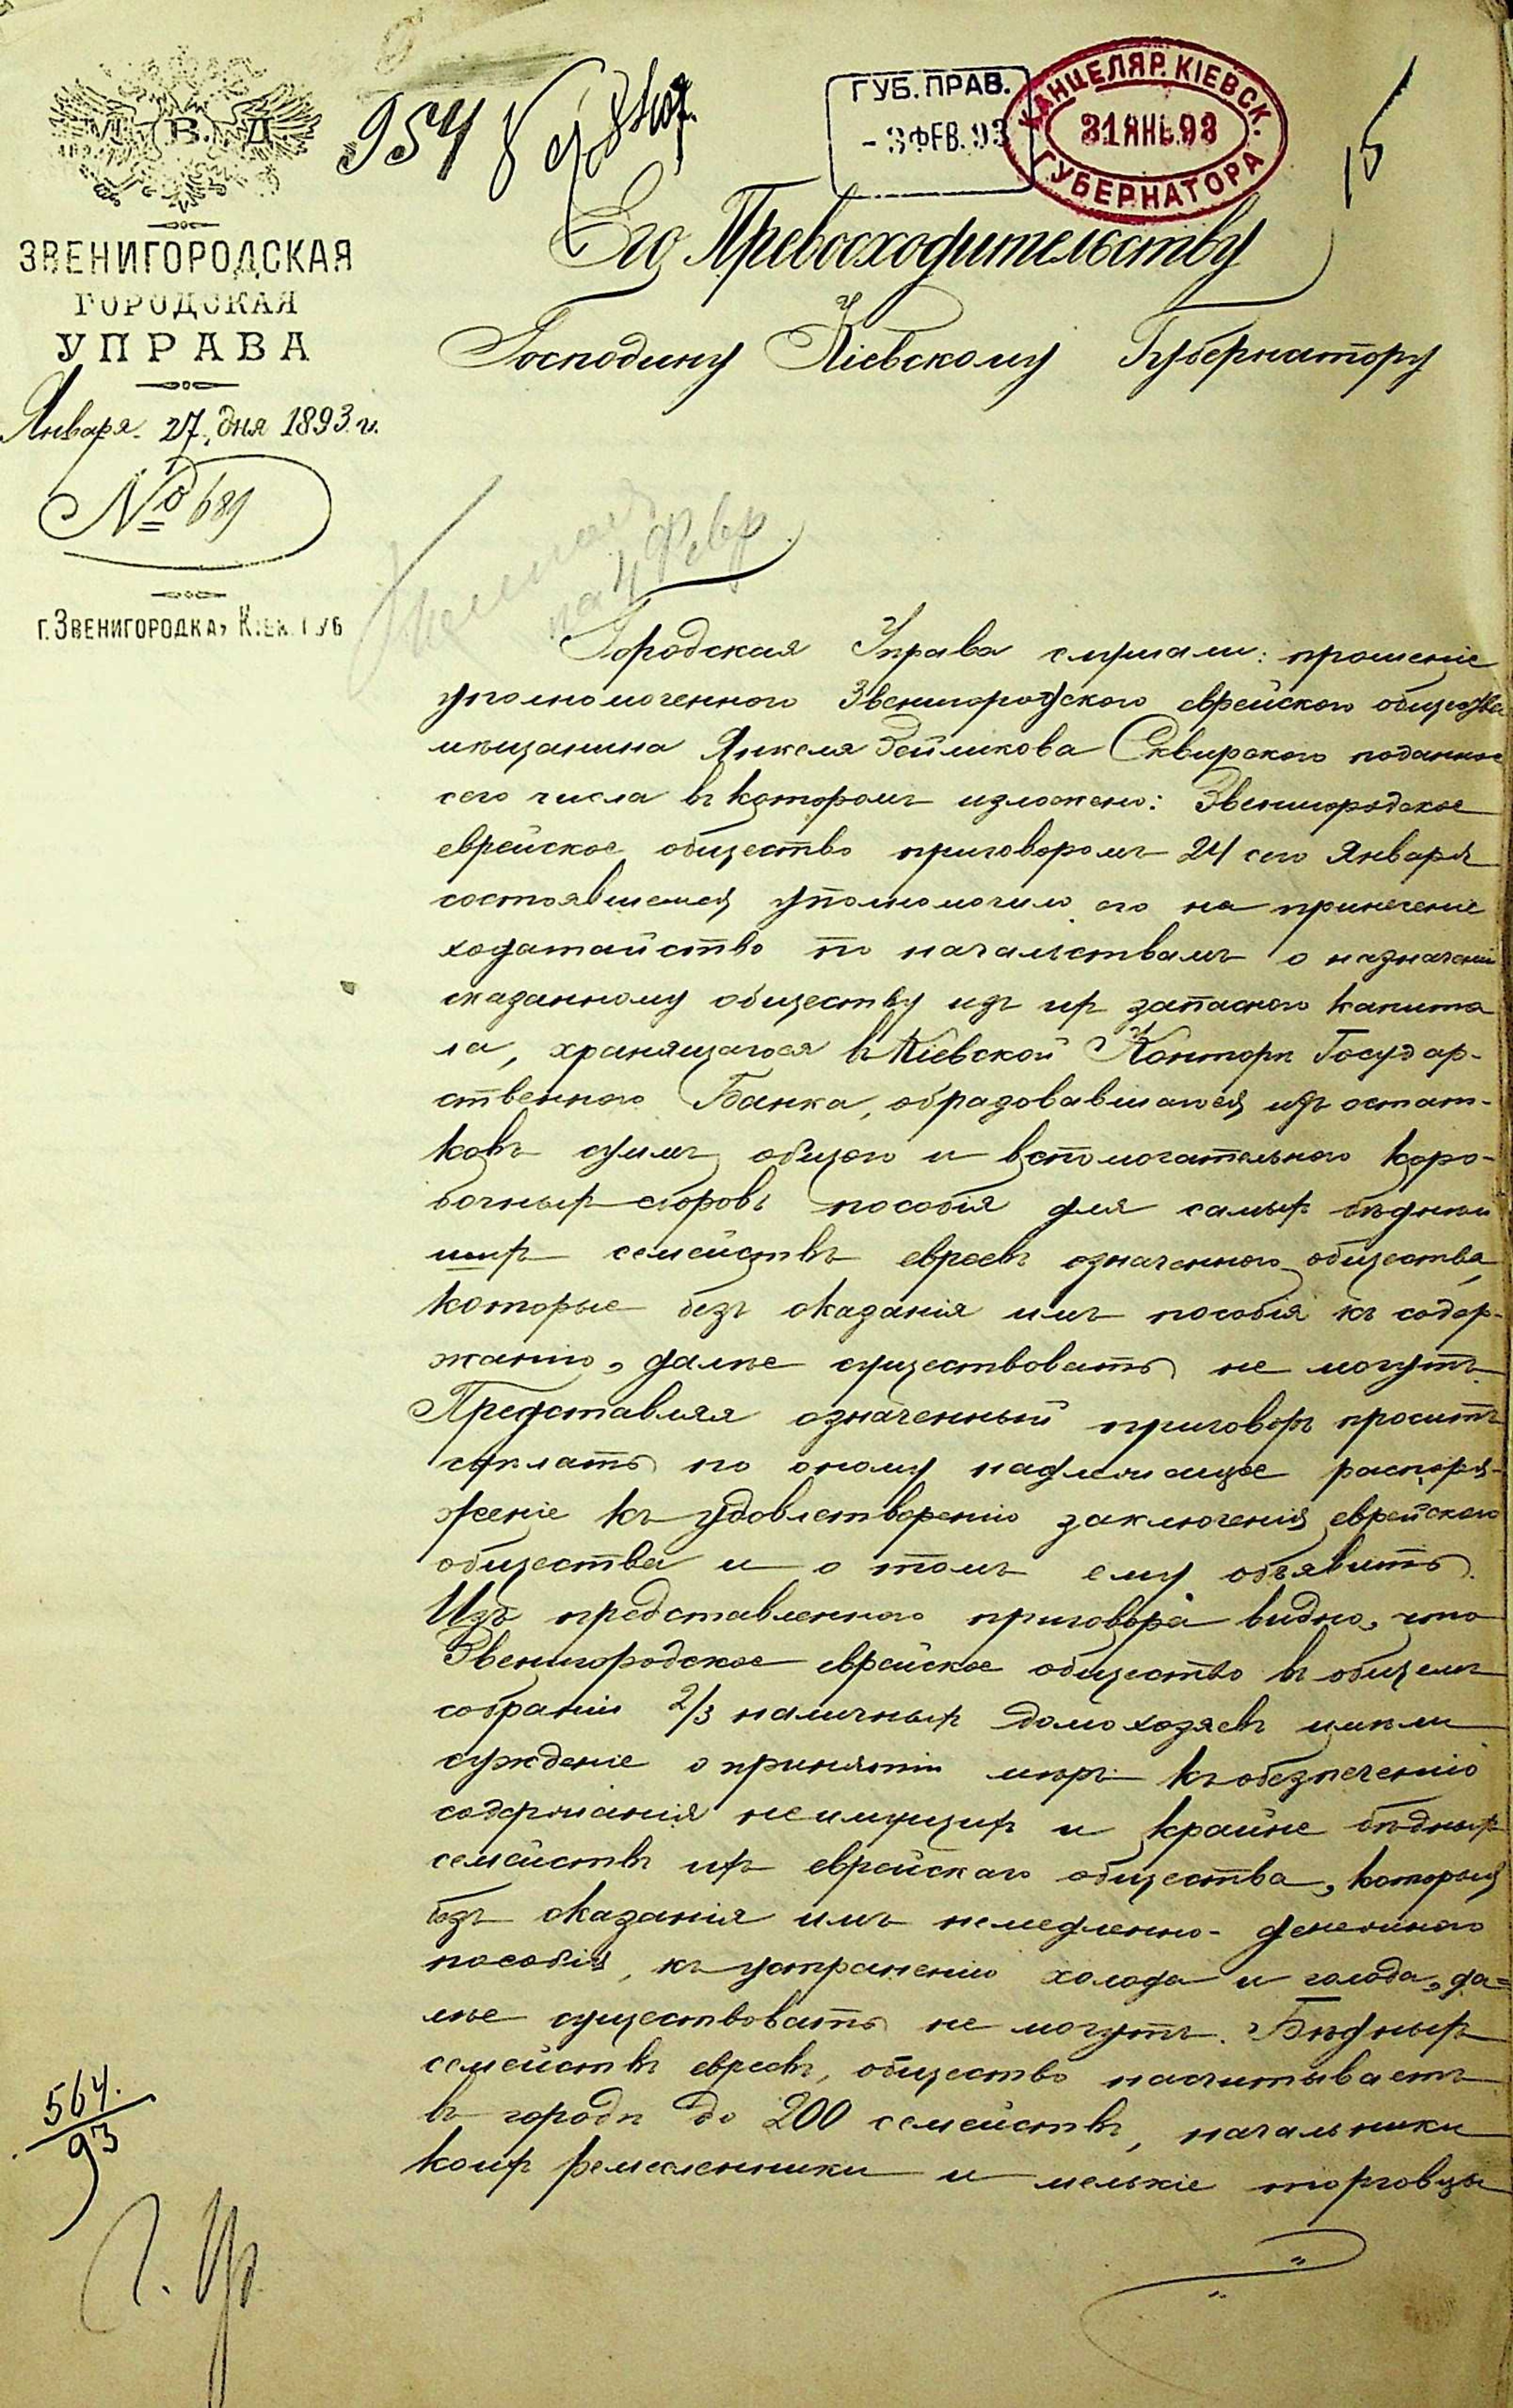 М. В. Д.
ЗВЕНИГОРОДСКАЯ
ГОРОДСКАЯ
УПРАВА
Января 27 дня 1893 г.
№ 689
г. ЗВЕНИГОРОДКА, КІЕВ. ГУБ
954
ГУБ. ПРАВ.
-3 ФЕВ. 93
КАНЦЕЛЯР. КІЕВСК.
31 ЯНВ. 93
ГУБЕРНАТОРА
15
Его Превосходительству
Господину Кіевскому Губернатору
на 4 Февр
Городская Управа слушали: прошеніе
уполномоченного Звенигородского еврейского общества
мѣщанина Янкеля Сквирского поданное
сего числа въ которомъ изложено: Звенигородское
еврейское общество приговоромъ 24 сего Января
состоявшемся уполномочило его на принесеніе
ходатайство по начальствамъ о назначеніи
сказанному обществу изъ ихъ запасного капита
ла, хранящагося въ Кіевской Конторѣ Государ-
ственного Банка, образовавшагося изъ остат-
ковъ суммъ общего и вспомогательного коро-
бочныхъ сборовъ пособія для самыхъ бѣднѣй
шихъ семействъ евреевъ означенного общества,
которые безъ оказанія имъ пособія къ содер-
жанію, далѣе существовать не могутъ.
Представляя означенный приговоръ проситъ
сдѣлать по оному надлежащее распоря-
женіе къ удовлетворенію заключенія еврейского
общества и о томъ ему объявить.
Изъ представленного приговора видно, что
Звенигородское еврейское общество въ общемъ
собраніи 2/3 наличныхъ домохозяевъ имѣли
сужденіе о принятіи мѣръ къ обезпеченію
содержанія неимущихъ и крайне бѣдныхъ
семействъ ихъ еврейскаго общества, которыя
безъ оказанія имъ немедленно-денежного
пособія, къ устраненію холода и голода, да=
лѣе существовать не могутъ. Бѣдныхъ
семействъ евреевъ, общество насчитываетъ
въ городѣ до 200 семействъ, начальники
коихъ ремесленники и мелькіе торговцы
564.
93